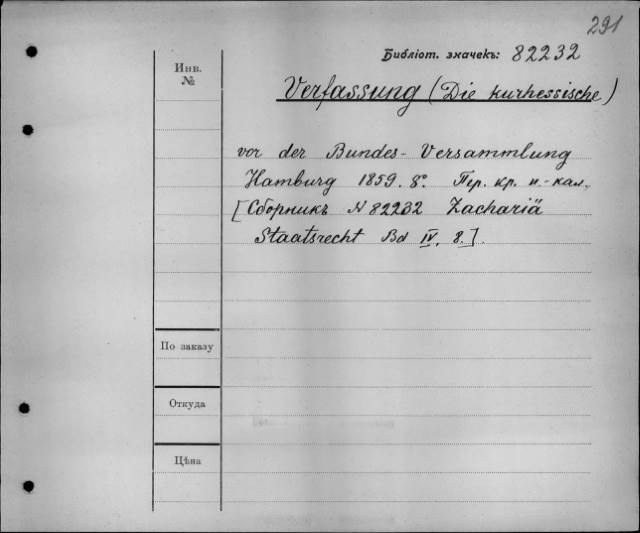 291
Библіот. значекъ: 82232
Инв.
№
Verfassung (Die kurhessische)
vor der Bundes-Versammlung
Hamburg 1859. 8º. Пер. кр. п.-кал.
[Сборникъ N 82232 Zachariä
Staatsrecht Bd IV. 8.].
По заказу
Откуда
Цѣна